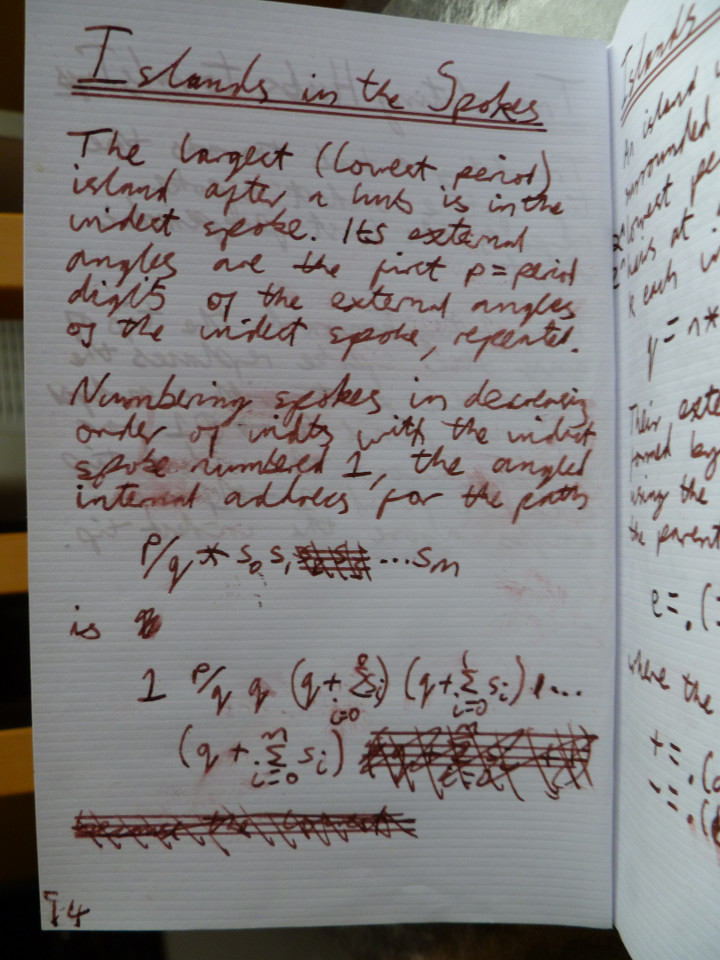 Islands in the Spokes
The largest (lowest period)
island after a hub is in the
widest spoke. Its external
angles are the first p = period
digits of the external angles
of the widest spoke, repeated.
Numbering spokes in decreasing
order of widts with the widest
spoke numbered 1, the angled
internal address for the path
P/q * s₀ s₁ ... sₘ
is
1 P/q q (q + Σ_{i=0}^{0} sᵢ) (q + Σ_{i=0}^{1} sᵢ) ...
(q + Σ_{i=0}^{m} sᵢ)
14
Islands
An island
surrounded
lowest pe
at
k each in
y = n*
Their exte
formed by
using the
the parent
e = .(
where the
+ = .(
- = .(